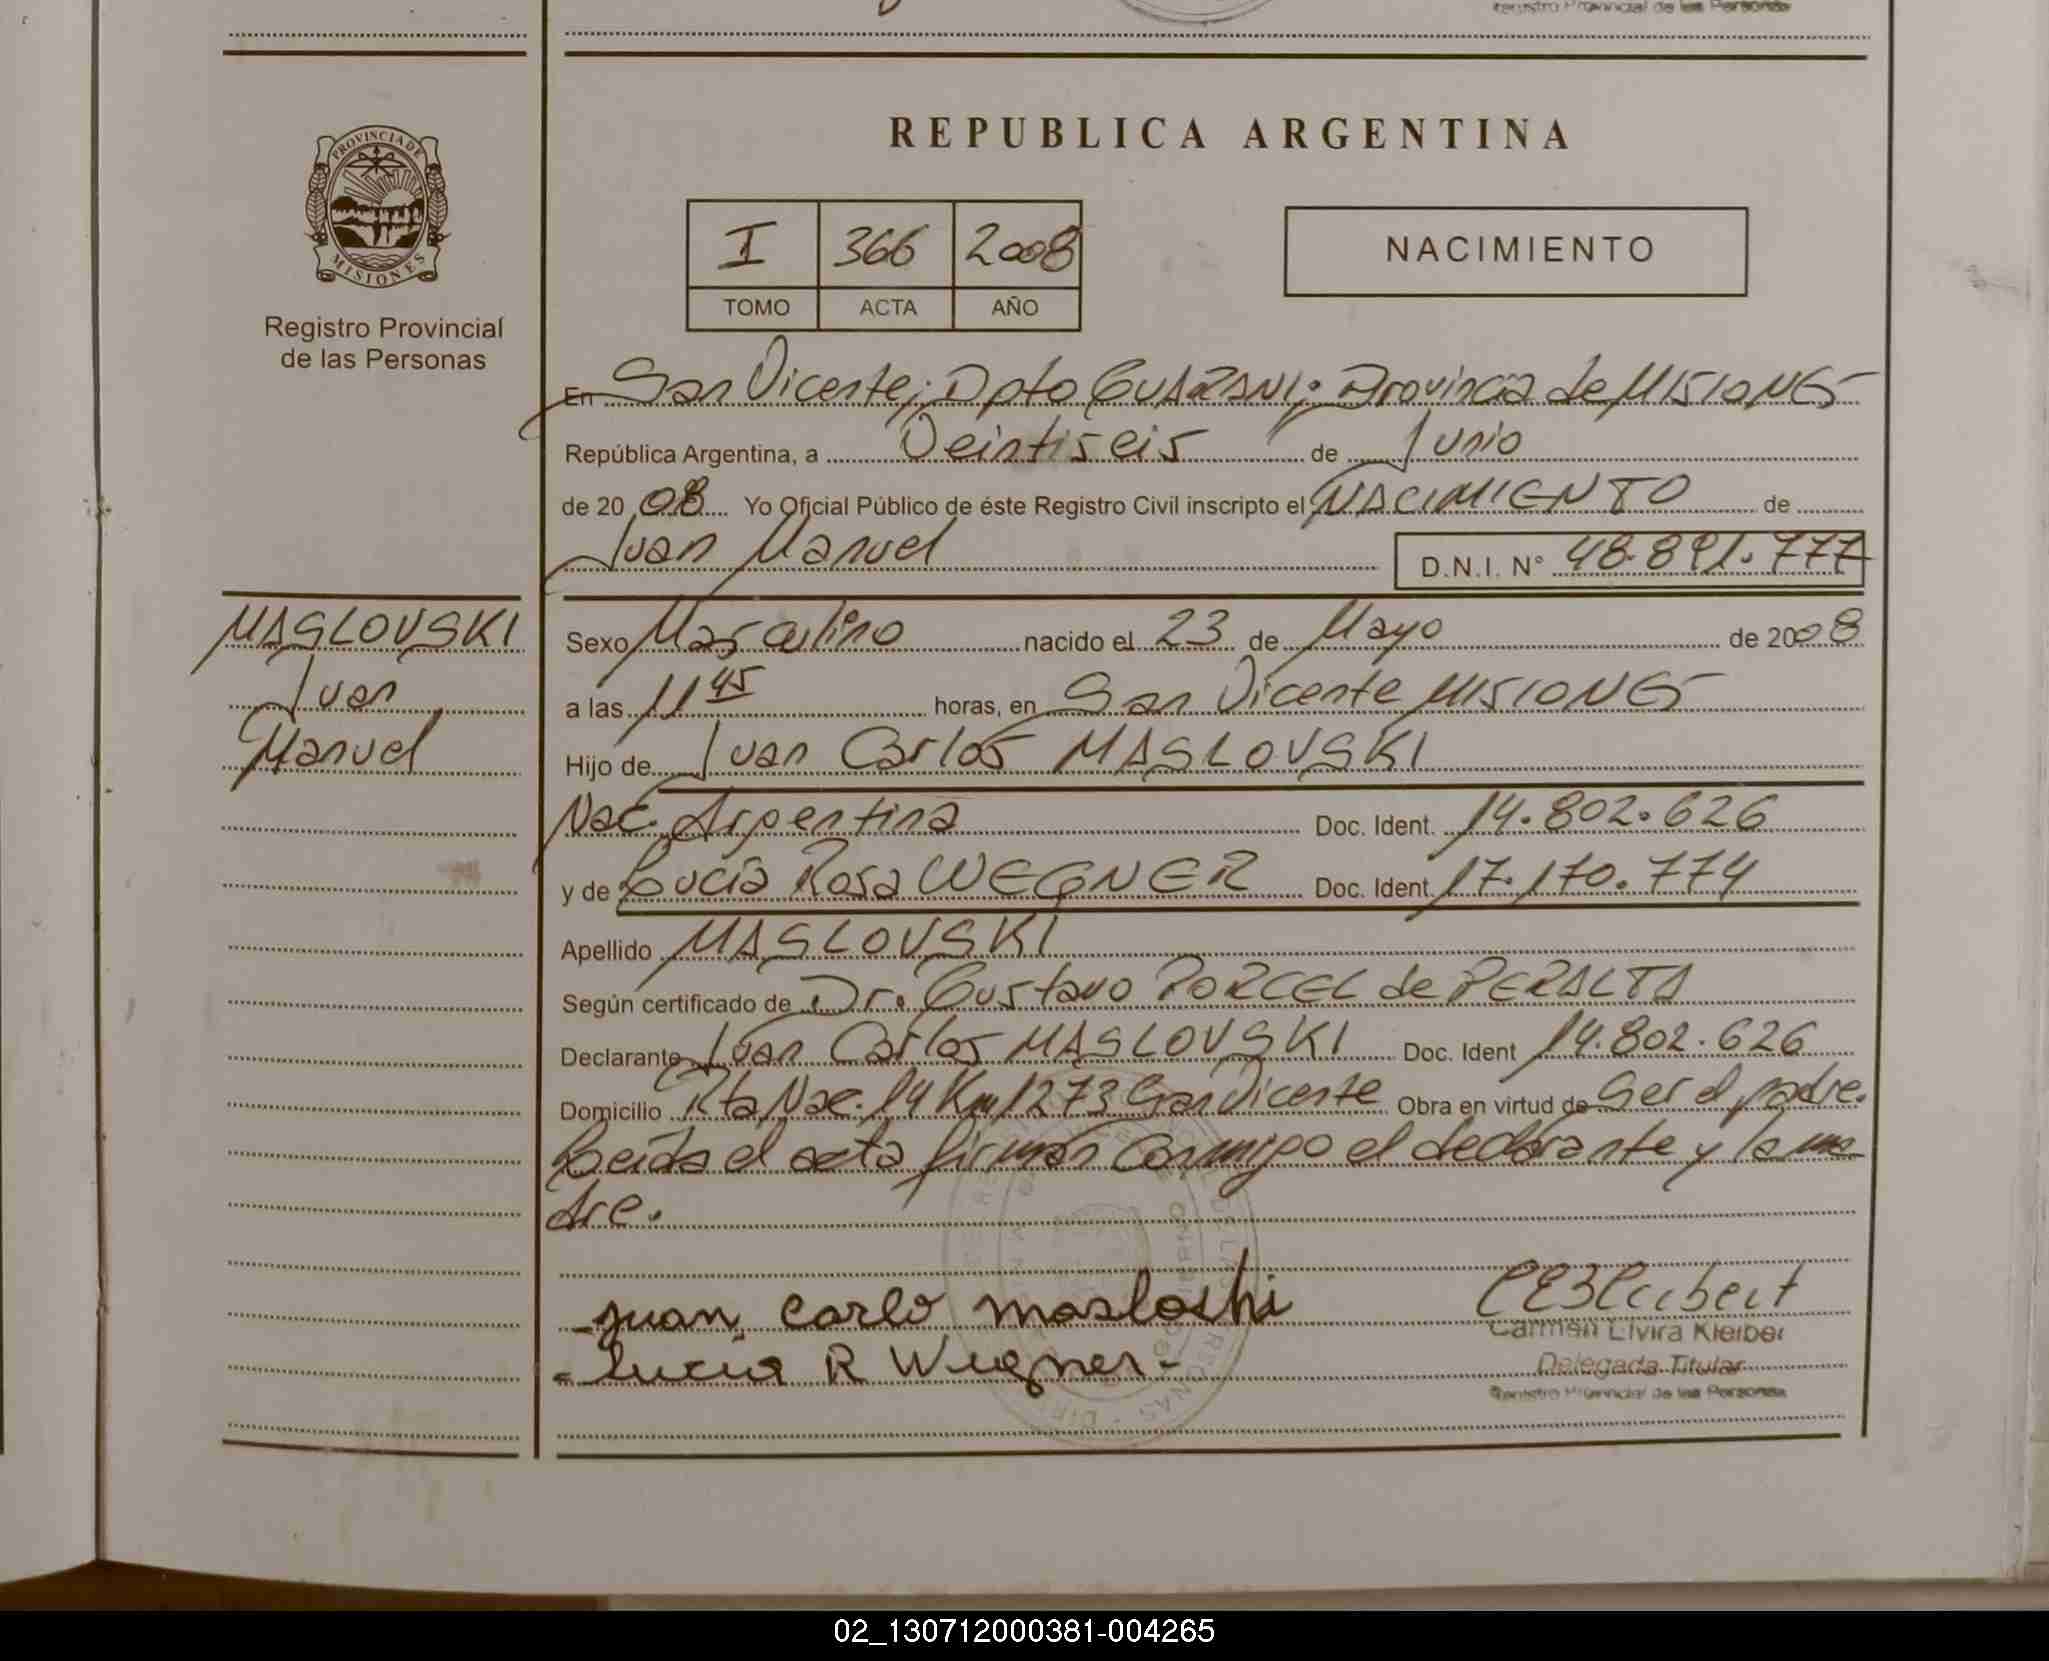 Registro Provincial de las Personas
REPUBLICA ARGENTINA
PROVINCIA DE
MISIONES
Registro Provincial
de las Personas
I 366 2008
TOMO ACTA AÑO
NACIMIENTO
En San Vicente; Dpto GUARANI; Provincia de MISIONES
República Argentina, a Veintiseis de Junio
de 20 08 Yo Oficial Público de éste Registro Civil inscripto el NACIMIENTO de
Juan Manuel D.N.I. N° 48.891.777
MASLOVSKI
Juan
Manuel
Sexo Masculino nacido el 23 de Mayo de 2008
a las 11 45 horas, en San Vicente MISIONES
Hijo de Juan Carlos MASLOVSKI
Nac. Argentina Doc. Ident. 14.802.626
y de Lucía Rosa WEGNER Doc. Ident 17.170.774
Apellido MASLOVSKI
Según certificado de Dr. Gustavo PORCEL de PERALTA
Declarante Juan Carlos MASLOVSKI Doc. Ident 14.802.626
Domicilio Rta Nac. 14 Km 1273 San Vicente Obra en virtud de Ser el padre.
Leída el acta firman conmigo el declarante y la ma-
dre.
juan carlo masloshi
lucia R Wegner
Carmen Elvira Kleiber
Delegada Titular
Registro Provincial de las Personas
02_130712000381-004265